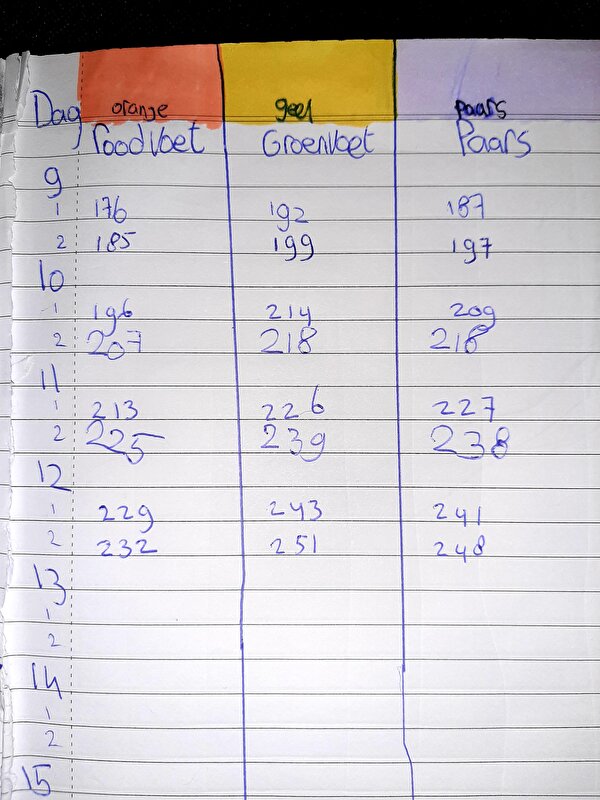 orange geel paars
Dag roodvoet Groenvoet Paars
9
1 176 192 187
2 185 199 197
10
1 196 214 209
2 207 218 218
11
1 213 226 227
2 225 239 238
12
1 229 243 241
2 232 251 248
13
1
2
14
1
2
15